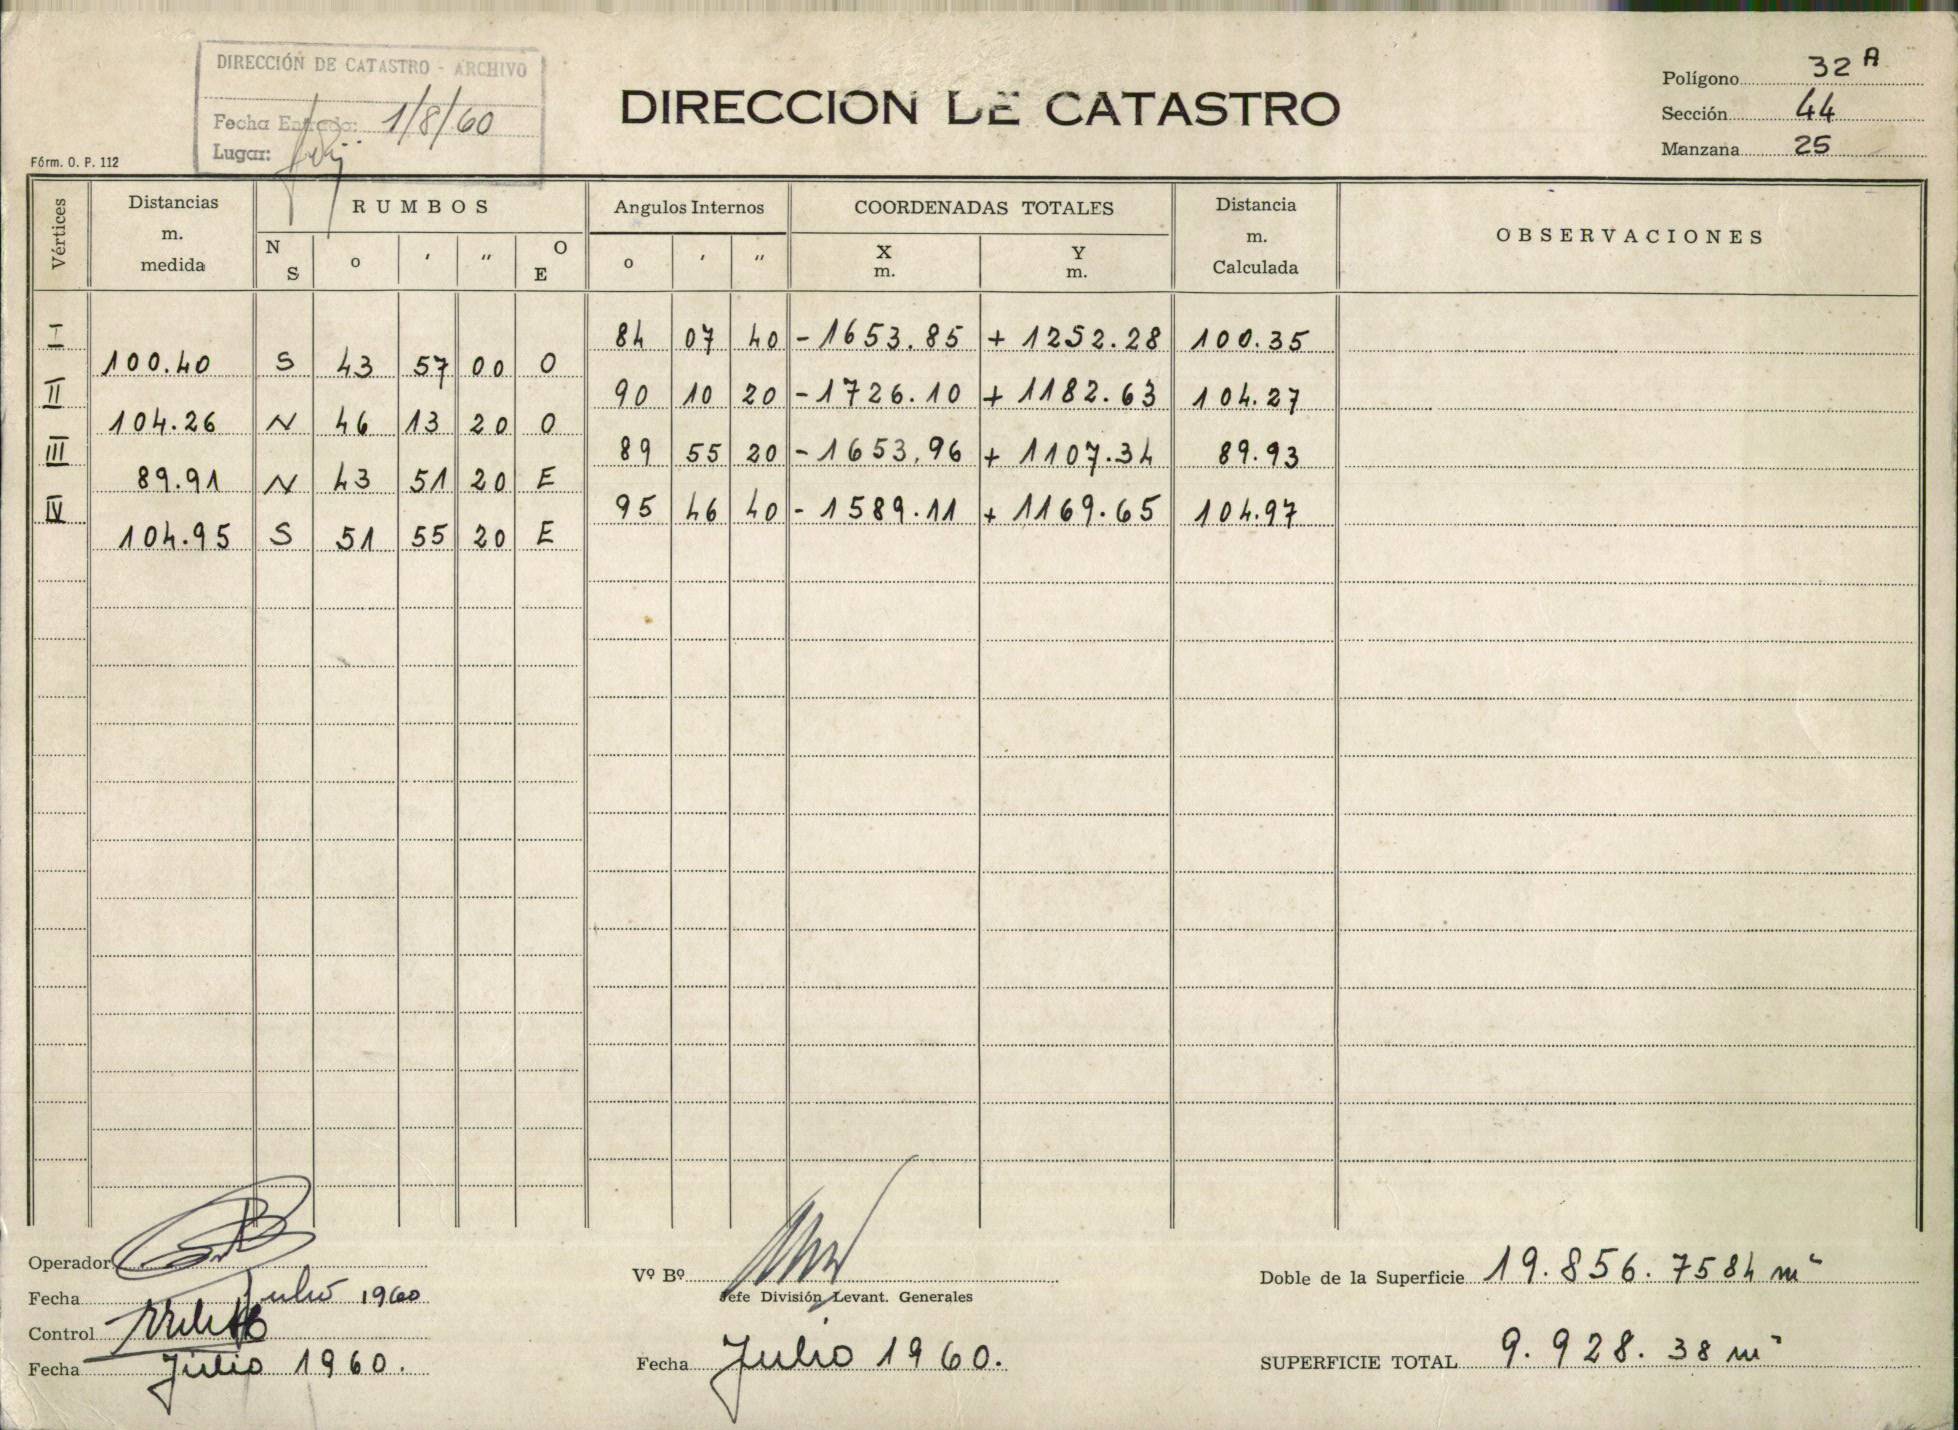 DIRECCIÓN DE CATASTRO - ARCHIVO
Fecha Entrada: 1/8/60
Lugar:
Fórm. O. P. 112
DIRECCION DE CATASTRO
Polígono 32 A
Sección 44
Manzana 25
Vértices Distancias m. medida RUMBOS Angulos Internos COORDENADAS TOTALES Distancia m. Calculada OBSERVACIONES
N S o ' " O E o ' " X m. Y m.
I 84 07 40 - 1653.85 + 1252.28 100.35
100.40 S 43 57 00 O
II 90 10 20 - 1726.10 + 1182.63 104.27
104.26 N 46 13 20 O
III 89 55 20 - 1653.96 + 1107.34 89.93
89.91 N 43 51 20 E
IV 95 46 40 - 1589.11 + 1169.65 104.97
104.95 S 51 55 20 E
Operador
Fecha Julio 1960
Control
Fecha Julio 1960.
Vº Bº
Jefe División Levant. Generales
Fecha Julio 1960.
Doble de la Superficie 19.856.7584 m²
SUPERFICIE TOTAL 9.928.38 m²